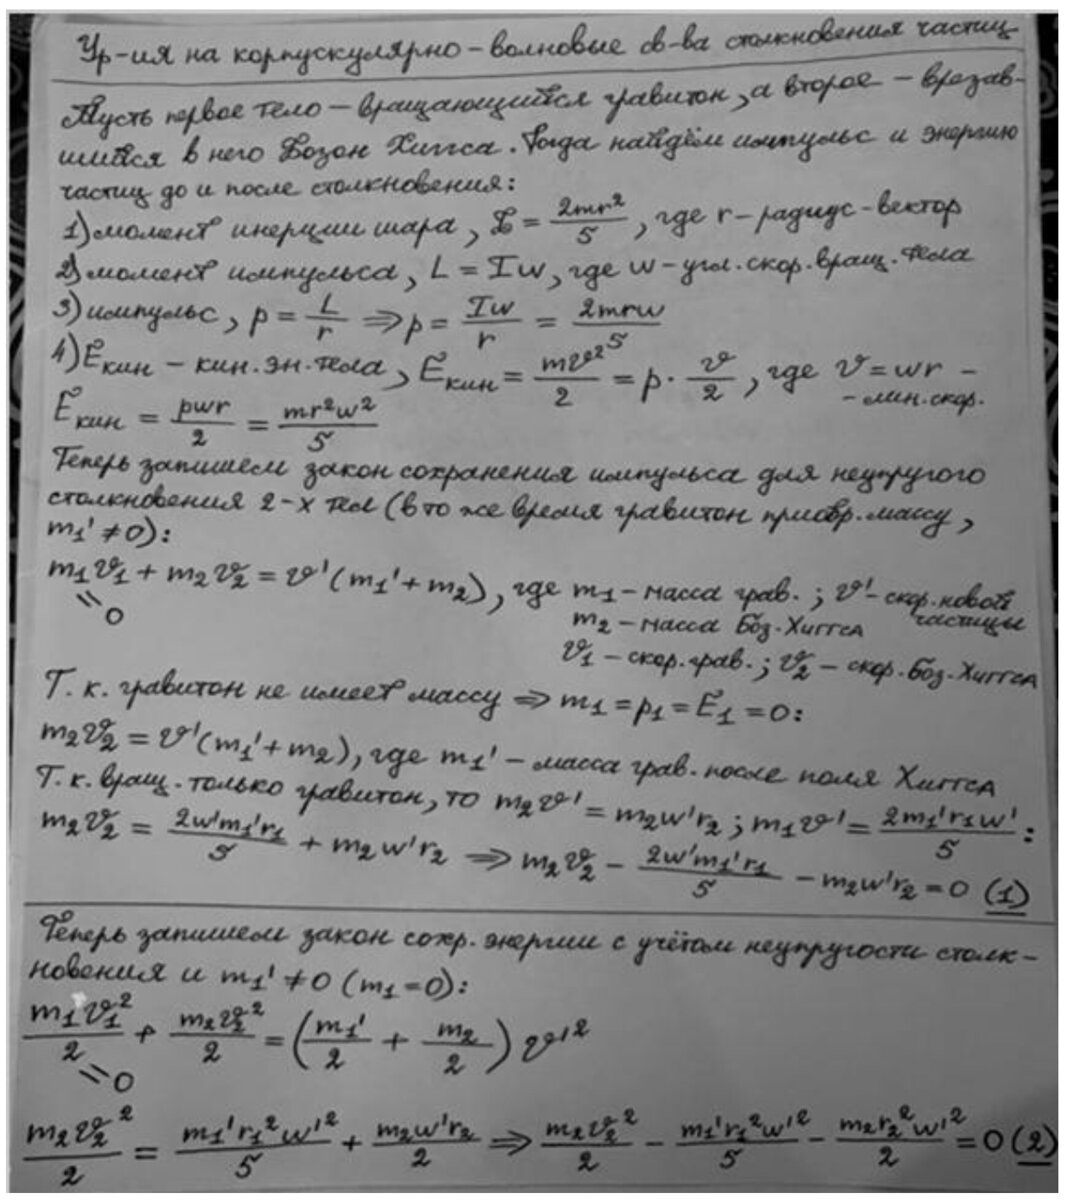 Ур-ия на корпускулярно-волновые св-ва столкновения частиц
Пусть первое тело – вращающийся гравитон, а второе – врезав-
шийся в него Бозон Хиггса. Тогда найдём импульс и энергию
частиц до и после столкновения:
1) момент инерции шара, I = 2mr²/5, где r – радиус-вектор
2) момент импульса, L = Iw, где w – угл. скор. вращ. тела
3) импульс, p = L/r ⇒ p = Iw/r = 2mrw/5
4) Eкин – кин. эн. тела, Eкин = mv²/2 = p · v/2, где v = wr –
– лин. скор.
Eкин = pwr/2 = mr²w²/5
Теперь запишем закон сохранения импульса для неупругого
столкновения 2-х тел (в то же время гравитон приобр. массу,
m₁' ≠ 0):
m₁v₁ + m₂v₂ = v'(m₁' + m₂), где m₁ – масса грав. ; v' – скор. новой частицы
=0
m₂ – масса Боз. Хиггса
v₁ – скор. грав. ; v₂ – скор. Боз. Хиггса
Т. к. гравитон не имеет массу ⇒ m₁ = p₁ = E₁ = 0:
m₂v₂ = v'(m₁' + m₂), где m₁' – масса грав. после поля Хиггса
Т. к. вращ. только гравитон, то m₂v' = m₂w'r₂ ; m₁v' = 2m₁'r₁w'/5 :
m₂v₂ = 2w'm₁'r₁/5 + m₂w'r₂ ⇒ m₂v₂ – 2w'm₁'r₁/5 – m₂w'r₂ = 0 (1)
Теперь запишем закон сохр. энергии с учётом неупругости столк-
новения и m₁' ≠ 0 (m₁ = 0):
m₁v₁²/2 + m₂v₂²/2 = (m₁'/2 + m₂/2) v'²
=0
m₂v₂²/2 = m₁'r₁²w'²/5 + m₂w'r₂/2 ⇒ m₂v₂²/2 – m₁'r₁²w'²/5 – m₂r₂²w'²/2 = 0 (2)